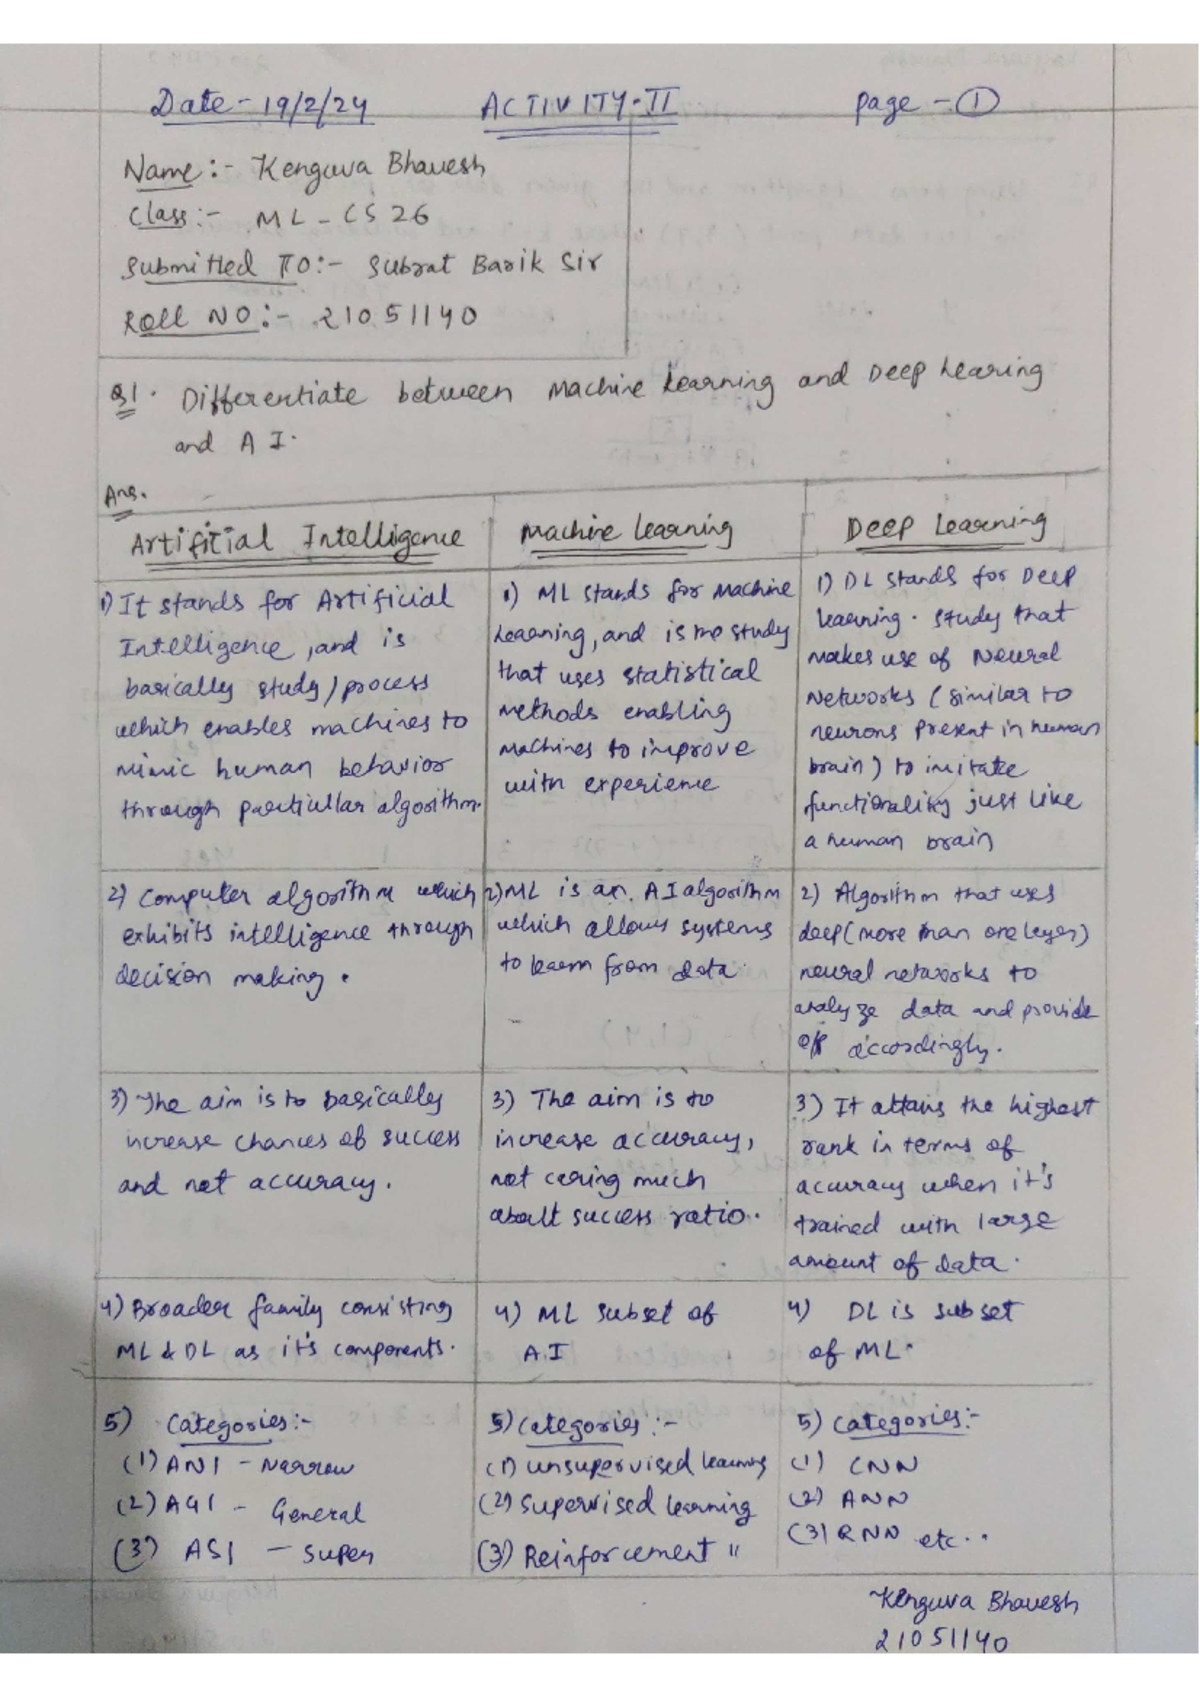 Date - 19/2/24 ACTIVITY-II Page - 1
Name :- Kenguva Bhavesh
Class :- ML - CS 26
Submitted TO :- Subrat Barik Sir
Roll NO :- 21051140
Q1. Differentiate between Machine Learning and Deep Learing
and A I.
Ans.
Artificial Intelligence
1) It stands for Artificial
Intelligence, and is
basically study/process
which enables machines to
mimic human behavior
through particular algorithm.
2) Computer algorithm which
exhibits intelligence through
decision making.
3) The aim is to basically
increase chances of success
and not accuracy.
4) Broader family consisting
ML & DL as it's components.
5) Categories :-
(1) ANI - Narrow
(2) AGI - General
(3) ASI - Super
Machine Learning
1) ML stands for Machine
Learning, and is the study
that uses statistical
methods enabling
machines to improve
with experience
2) ML is an AI algorithm
which allows systems
to learn from data.
3) The aim is to
increase accuracy,
not caring much
about success ratio.
4) ML subset of
A.I
5) Categories :-
(1) Unsupervised learning
(2) Supervised learning
(3) Reinforcement "
Deep Learning
1) DL stands for Deep
Learning. Study that
makes use of Neural
Networks (similar to
neurons present in human
brain) to imitate
functionality just like
a human brain
2) Algorithm that uses
deep (more than one layer)
neural networks to
analyze data and provide
o/p accordingly.
3) It attains the highest
rank in terms of
accuracy when it's
trained with large
amount of data.
4) DL is subset
of ML.
5) Categories :-
(1) CNN
(2) ANN
(3) RNN etc..
Kenguva Bhavesh
21051140